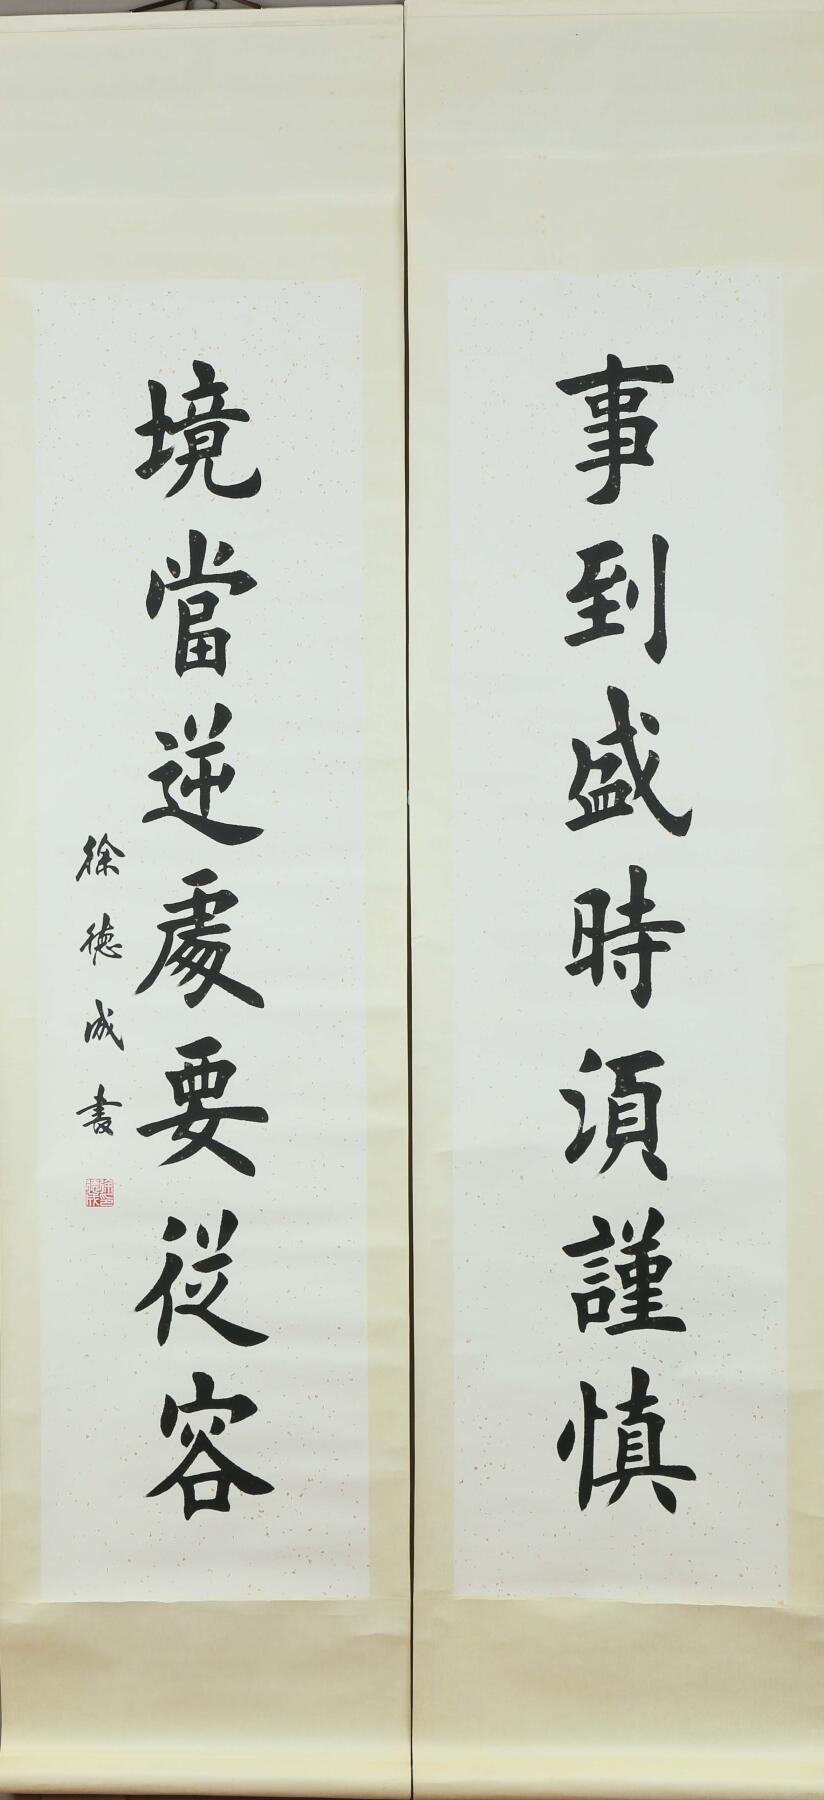 事到盛時須謹慎
境當逆處要從容
徐德成書